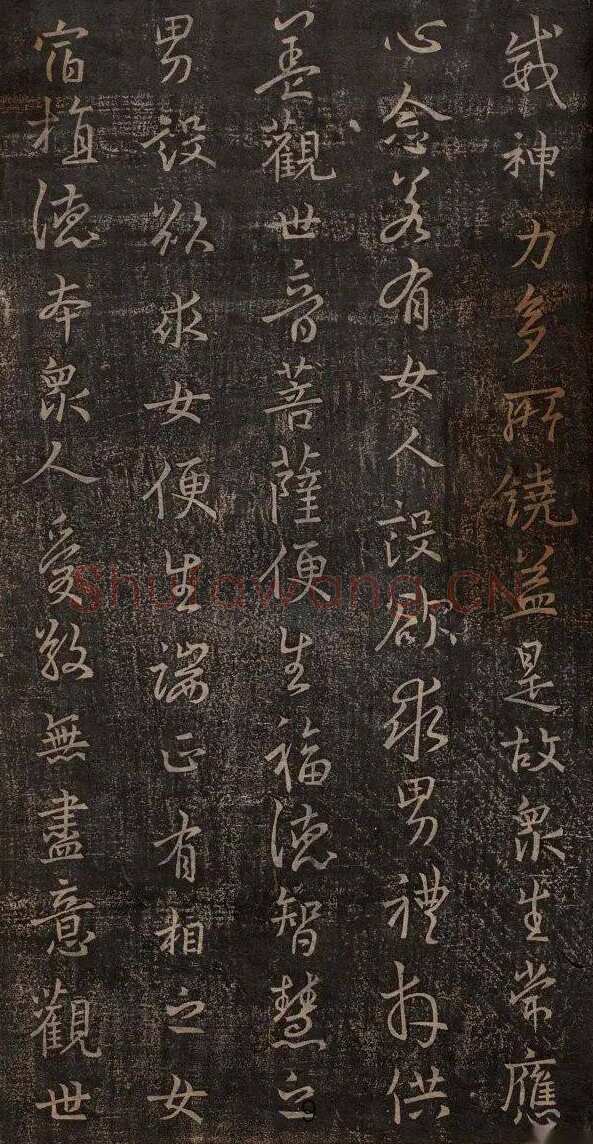 威神力多所饒益是故衆生常應
心念若有女人設欲求男禮拜供
養觀世音菩薩便生福德智慧之
男設欲求女便生端正有相之女
宿植德本衆人愛敬無盡意觀世
ShufaWang.CN
9